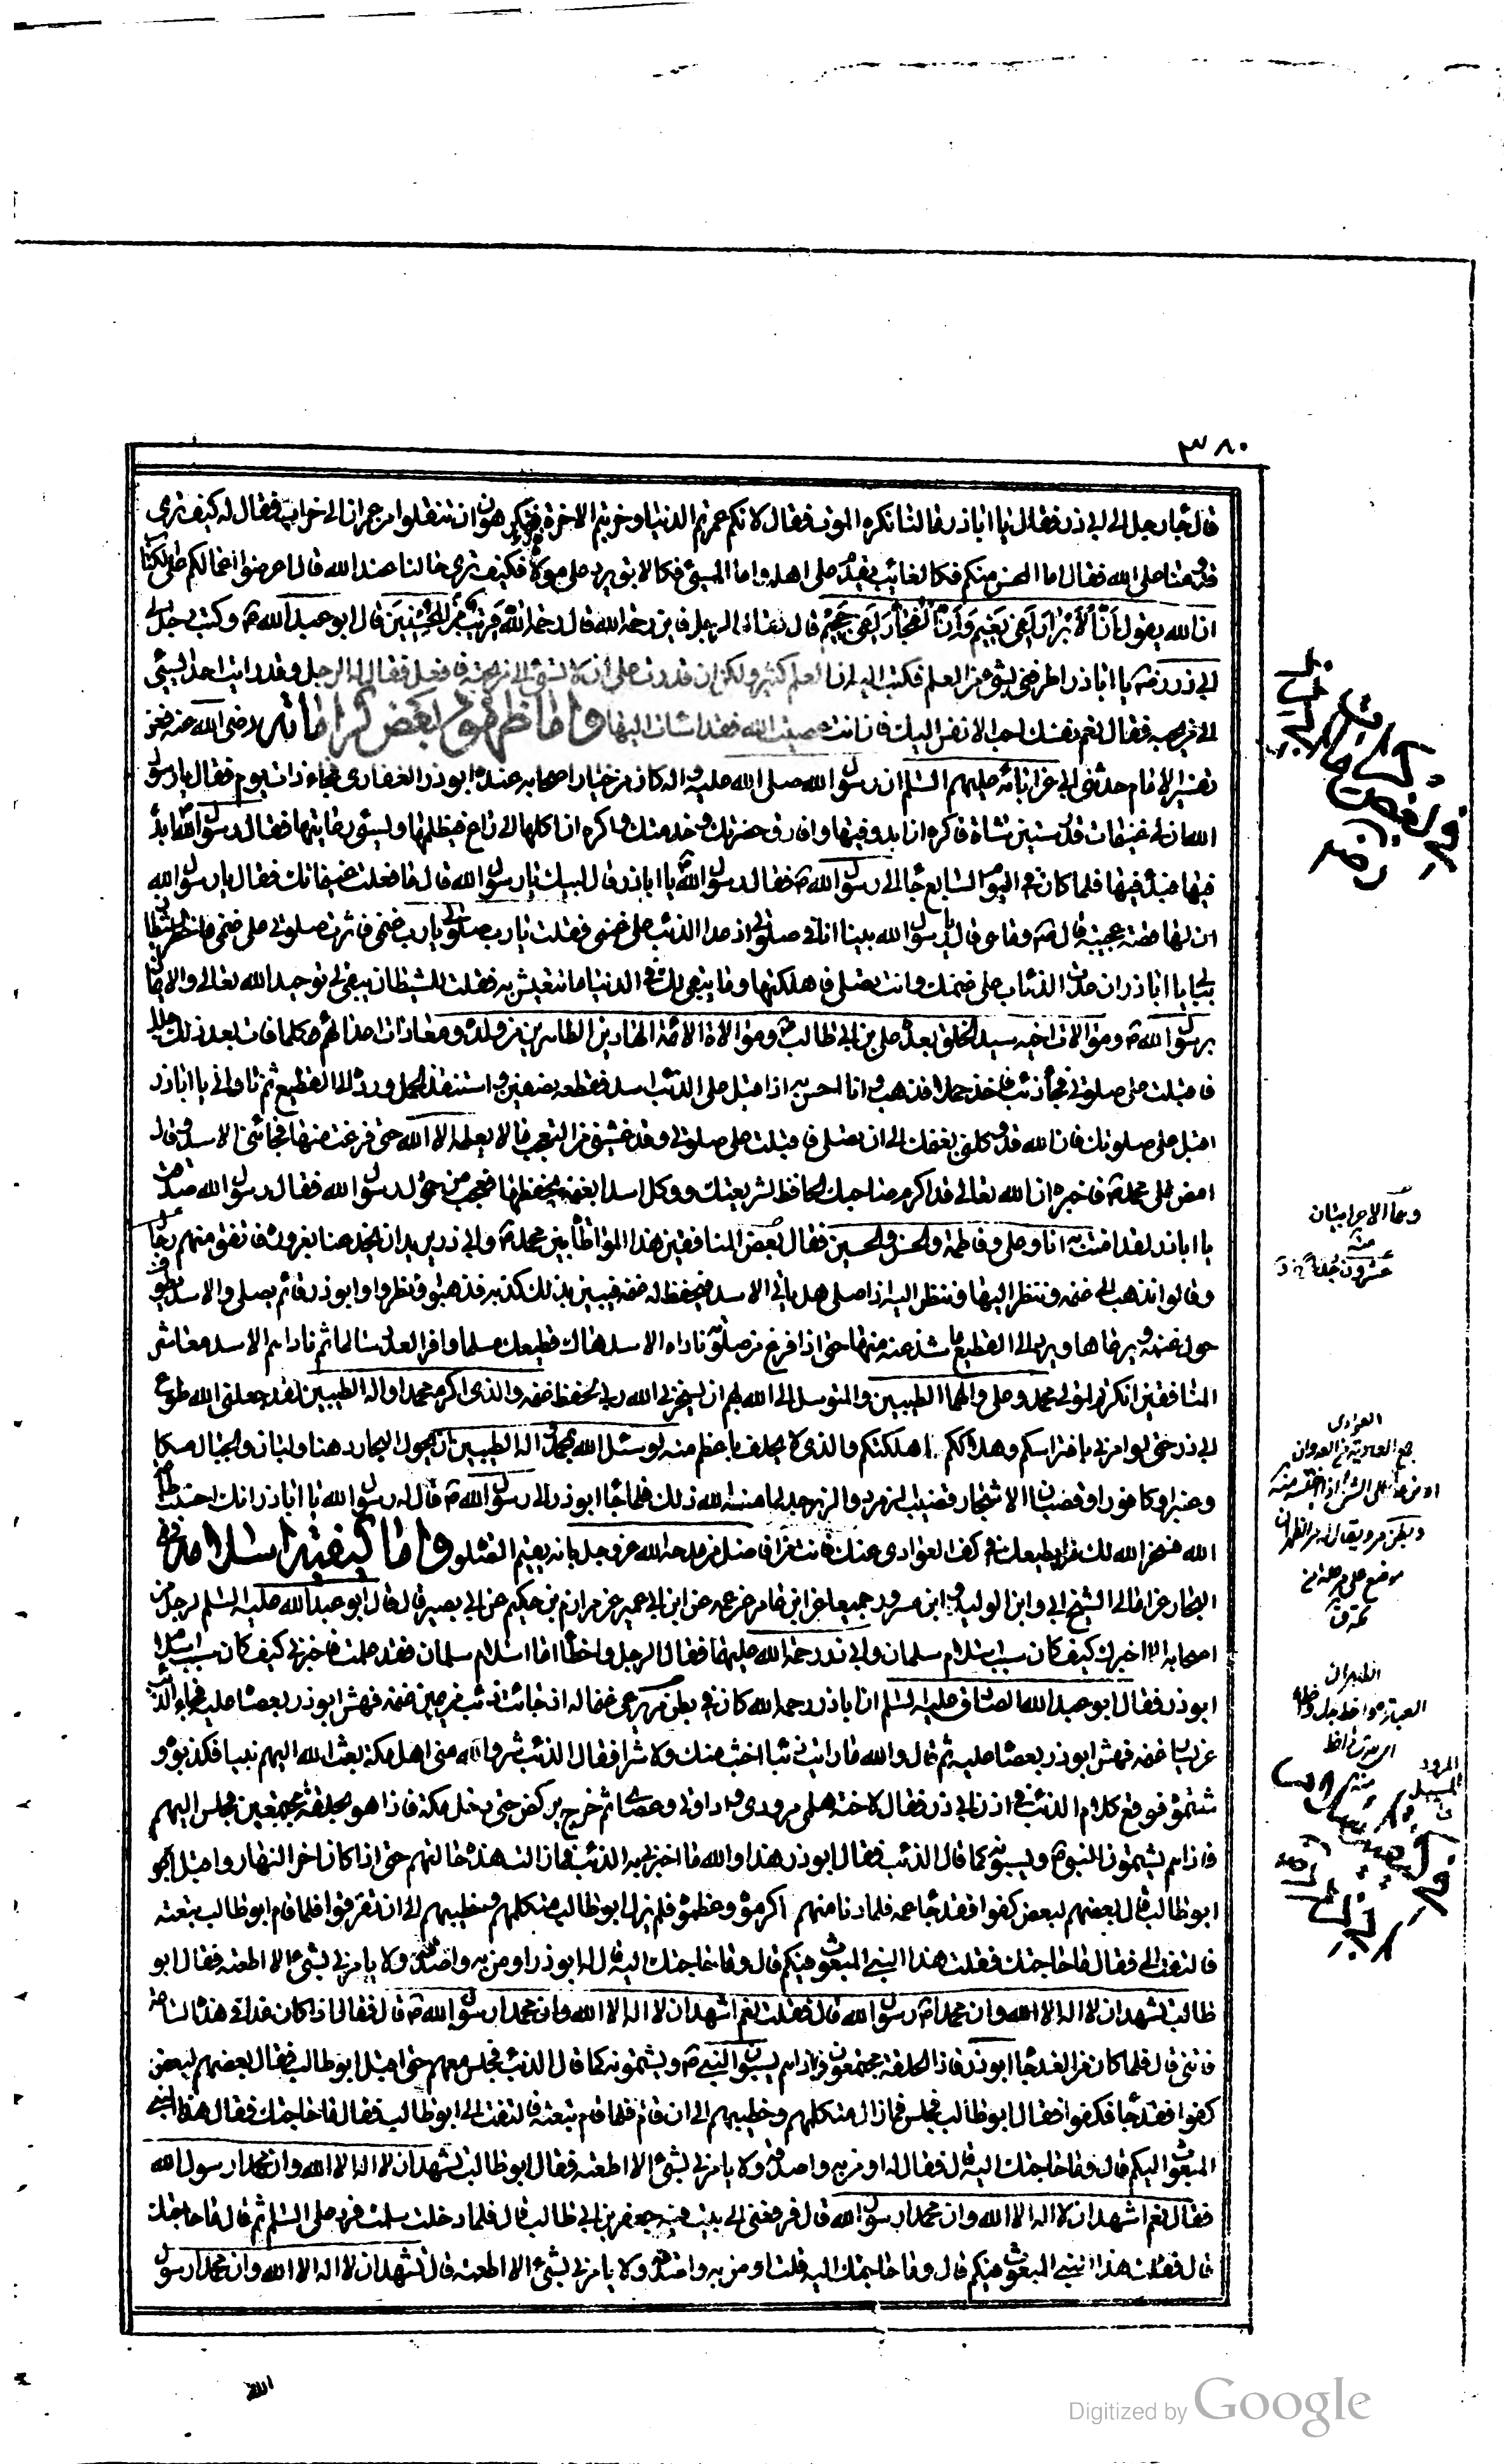 ٣٨٠
قال جاء رجل الى ابي ذر فقال يا اباذر مالنا نكره الموت فقال لانكم عمرتم الدنيا وخربتم الاخرة فتكرهون ان تنقلوا من عمران الى خراب فقال له كيف ترى
قدومنا على الله فقال اما المحسن منكم فكالغائب يقدم على اهله واما المسيئ فكالابق يرد على مولاه فكيف ترى حالنا عند الله قال اعرضوا اعمالكم على الكتاب
ان الله يقول ان الابرار لفي نعيم وان الفجار لفي جحيم قال فقال الرجل فاين رحمة الله قال رحمة الله قريب من المحسنين قال ابو عبد الله ع وكتب رجل الى
ابي ذر رضه يا اباذر اطرفني بشيء من العلم فكتب اليه ان العلم كثير ولكن ان قدرت على ان لا تسيئ الى من تحبه فافعل فقال له الرجل وهل رايت احدا يسيئ
الى من يحبه فقال نعم نفسك احب الانفس اليك فاذا انت عصيت الله فقد اسات اليها واما ظهور بعض كراماته رضي الله عنه فعن
تفسير الامام حدثني ابي عن ابائه عليهم السلام ان رسول الله صلى الله عليه واله كان من خيار اصحابه عنده ابو ذر الغفاري فجاءه ذات يوم فقال يا رسول
الله ان لي غنيمات قدر ستين شاة فاكره ان ابدو فيها وافارق حضرتك وخدمتك واكره ان اكلها الى راع فيظلمها ويسيئ رعايتها فقال رسول الله ابد
فيها فبدا فيها فلما كان في اليوم السابع جاء الى رسول الله ص فقال رسول الله يا اباذر قال لبيك يا رسول الله قال ما فعلت غنيماتك فقال يا رسول الله
ان لها قصة عجيبة قال ص وما هي قال يا رسول الله بينا انا في صلوتي اذ عدا الذئب على غنمي فقلت يا رب صلوتي يا رب غنمي فاثرت صلوتي على غنمي فاخطر الشيطان
ببالي يا اباذر ان عدت الذئاب على غنمك وانت تصلي فاهلكتها وما يبقى لك في الدنيا ما تتعيش به فقلت للشيطان يبقى لي توحيد الله تعالى والايمان
برسول الله ص وموالاة اخيه سيد الخلق بعده علي بن ابي طالب وموالاة الائمة الهادين الطاهرين من ولده ومعاداة اعدائهم فكلما فات بعد ذلك جلل
فاقبلت على صلوتي فجاء ذئب فاخذ حملا فذهب به وانا احس به اذ اقبل على الذئب اسد فقطعه نصفين واستنقذ الحمل ورده الى القطيع ثم ناداني يا اباذر
اقبل على صلوتك فان الله قد وكلني بغنمك الى ان تصلي فاقبلت على صلوتي وقد غشيني من التعجب ما لا يعلمه الا الله حتى فرغت منها فجائني الاسد وقال
امض الى محمد ص فاخبره ان الله تعالى قد اكرم صاحبك الحافظ لشريعتك ووكل اسدا بغنمه يحفظها فعجب من حول رسول الله فقال رسول الله صدقت
يا اباذر لقد امنت به انا وعلي وفاطمة والحسن والحسين فقال بعض المنافقين هذا المواطاة بين محمد ص وابي ذر يريد ان يخدعنا بغروره فاتفق منهم رجال
وقالوا نذهب الى غنمه وننظر اليها وننظر اليه اذا صلى هل ياتي الاسد فيحفظ له غنمه فيتبين بذلك كذبه فذهبوا ونظروا وابوذر قائم يصلي والاسد يطوف
حول غنمه ويرعاها ويرد الى القطيع ما شذ عنه منها حتى اذا فرغ من صلوته ناداه الاسد هاك قطيعك مسلما وافر العدد سالما ثم ناداهم الاسد معاشر
المنافقين انكرتم لمولى محمد وعلي والهما الطيبين والمتوسل الى الله بهم ان يسخرني الله ربي لحفظ غنمه والذي اكرم محمدا واله الطيبين لقد جعلني الله طوع
ابي ذر حتى لو امرني بافتراسكم وهلاككم لاهلكتكم والذي لا يحلف باعظم منه لو سئل الله بمحمد واله الطيبين ان يحول البحار دهنا ولبان والجبال مسكا
وعنبرا وكافورا وقضبان الاشجار قضيب الزمرد والزبرجد لما منعه الله ذلك فلما جاء ابوذر الى رسول الله ص قال له رسول الله يا اباذر انك احسنت طاعة
الله فسخر الله لك من يطيعك في كف العوادي عنك فانت من افاضل من مدحه الله عز وجل بانه يقيم الصلوة واما كيفية اسلامه ففي
البحار عن امالي الشيخ ابي وابن الوليد وابن مسرور جميعا عن ابن عامر عن عمه عن ابن ابي عمير عن مرازم بن حكيم عن ابي بصير قال قال ابو عبد الله عليه السلم لرجل من
اصحابه الا اخبرك كيف كان سبب اسلام سلمان وابي ذر رحمة الله عليهما فقال الرجل واخطأ اما اسلام سلمان فقد علمت فاخبرني كيف كان سبب اسلام
ابوذر فقال ابو عبد الله الصادق عليه السلم ان اباذر رحمه الله كان في بطن مر يرعى غنما له اذ جاءت ذئب من يمين غنمه فهش ابوذر بعصاه عليه فجاء الذئب
عن يسار غنمه فهش ابوذر بعصاه عليه ثم قال والله ما رايت ذئبا اخبث منك ولا شرا فقال الذئب شر والله مني اهل مكة بعث الله اليهم نبيا فكذبوه و
شتموه فوقع كلام الذئب في اذن ابي ذر فقال لاخته هلمي مزودي واداوتي وعصاي ثم خرج يركض حتى دخل مكة فاذا هو بحلقة مجتمعين فجلس اليهم
فاذا هم يشتمون النبي ص ويسبونه كما قال الذئب فقال ابوذر هذا والله ما اخبرني به الذئب فما زالت هذه حالتهم حتى اذا كان اخر النهار واقبل ابو
ابو طالب قال بعضهم لبعض كفوا فقد جاء عمه فلما دنا منهم اكرموه وعظموه فلم يزل ابو طالب متكلمهم وخطيبهم الى ان تفرقوا فلما قام ابو طالب تبعته
فالتفت الي فقال ما حاجتك فقلت هذا النبي المبعوث فيكم قال وما حاجتك اليه قال له ابوذر اومن به واصدقه ولا يامرني بشيء الا اطعته فقال ابو
طالب تشهد ان لا اله الا الله وان محمدا ص رسول الله قال فقلت نعم اشهد ان لا اله الا الله وان محمدا رسول الله ص قال فقال اذا كان غدا في هذه الساعة
فاتني قال فلما كان من الغد جاء ابوذر فاذا الحلقة مجتمعون واذا هم يسبون النبي ص ويشتمونه كما قال الذئب فجلس معهم حتى اقبل ابو طالب فقال بعضهم لبعض
كفوا فقد جاء فكفوا فقال ابو طالب فجلس فما زال متكلمهم وخطيبهم الى ان قام فلما قام تبعته فالتفت الي ابو طالب فقال ما حاجتك فقال هذا النبي
المبعوث اليكم قال وما حاجتك اليه قال فقال له اومن به واصدقه ولا يامرني بشيء الا اطعته فقال ابو طالب تشهد ان لا اله الا الله وان محمدا رسول الله
فقال نعم اشهد ان لا اله الا الله وان محمدا رسول الله قال فرفعني الى بيت فيه جعفر بن ابي طالب قال فلما دخلت سلمت فرد علي السلم ثم قال ما حاجتك
قال فقلت هذا النبي المبعوث فيكم قال وما حاجتك اليه قلت اومن به واصدقه ولا يامرني بشيء الا اطعته قال تشهد ان لا اله الا الله وان محمدا رسول
الله
في بعض كرامات
العوادي
الظهران
Digitized by Google